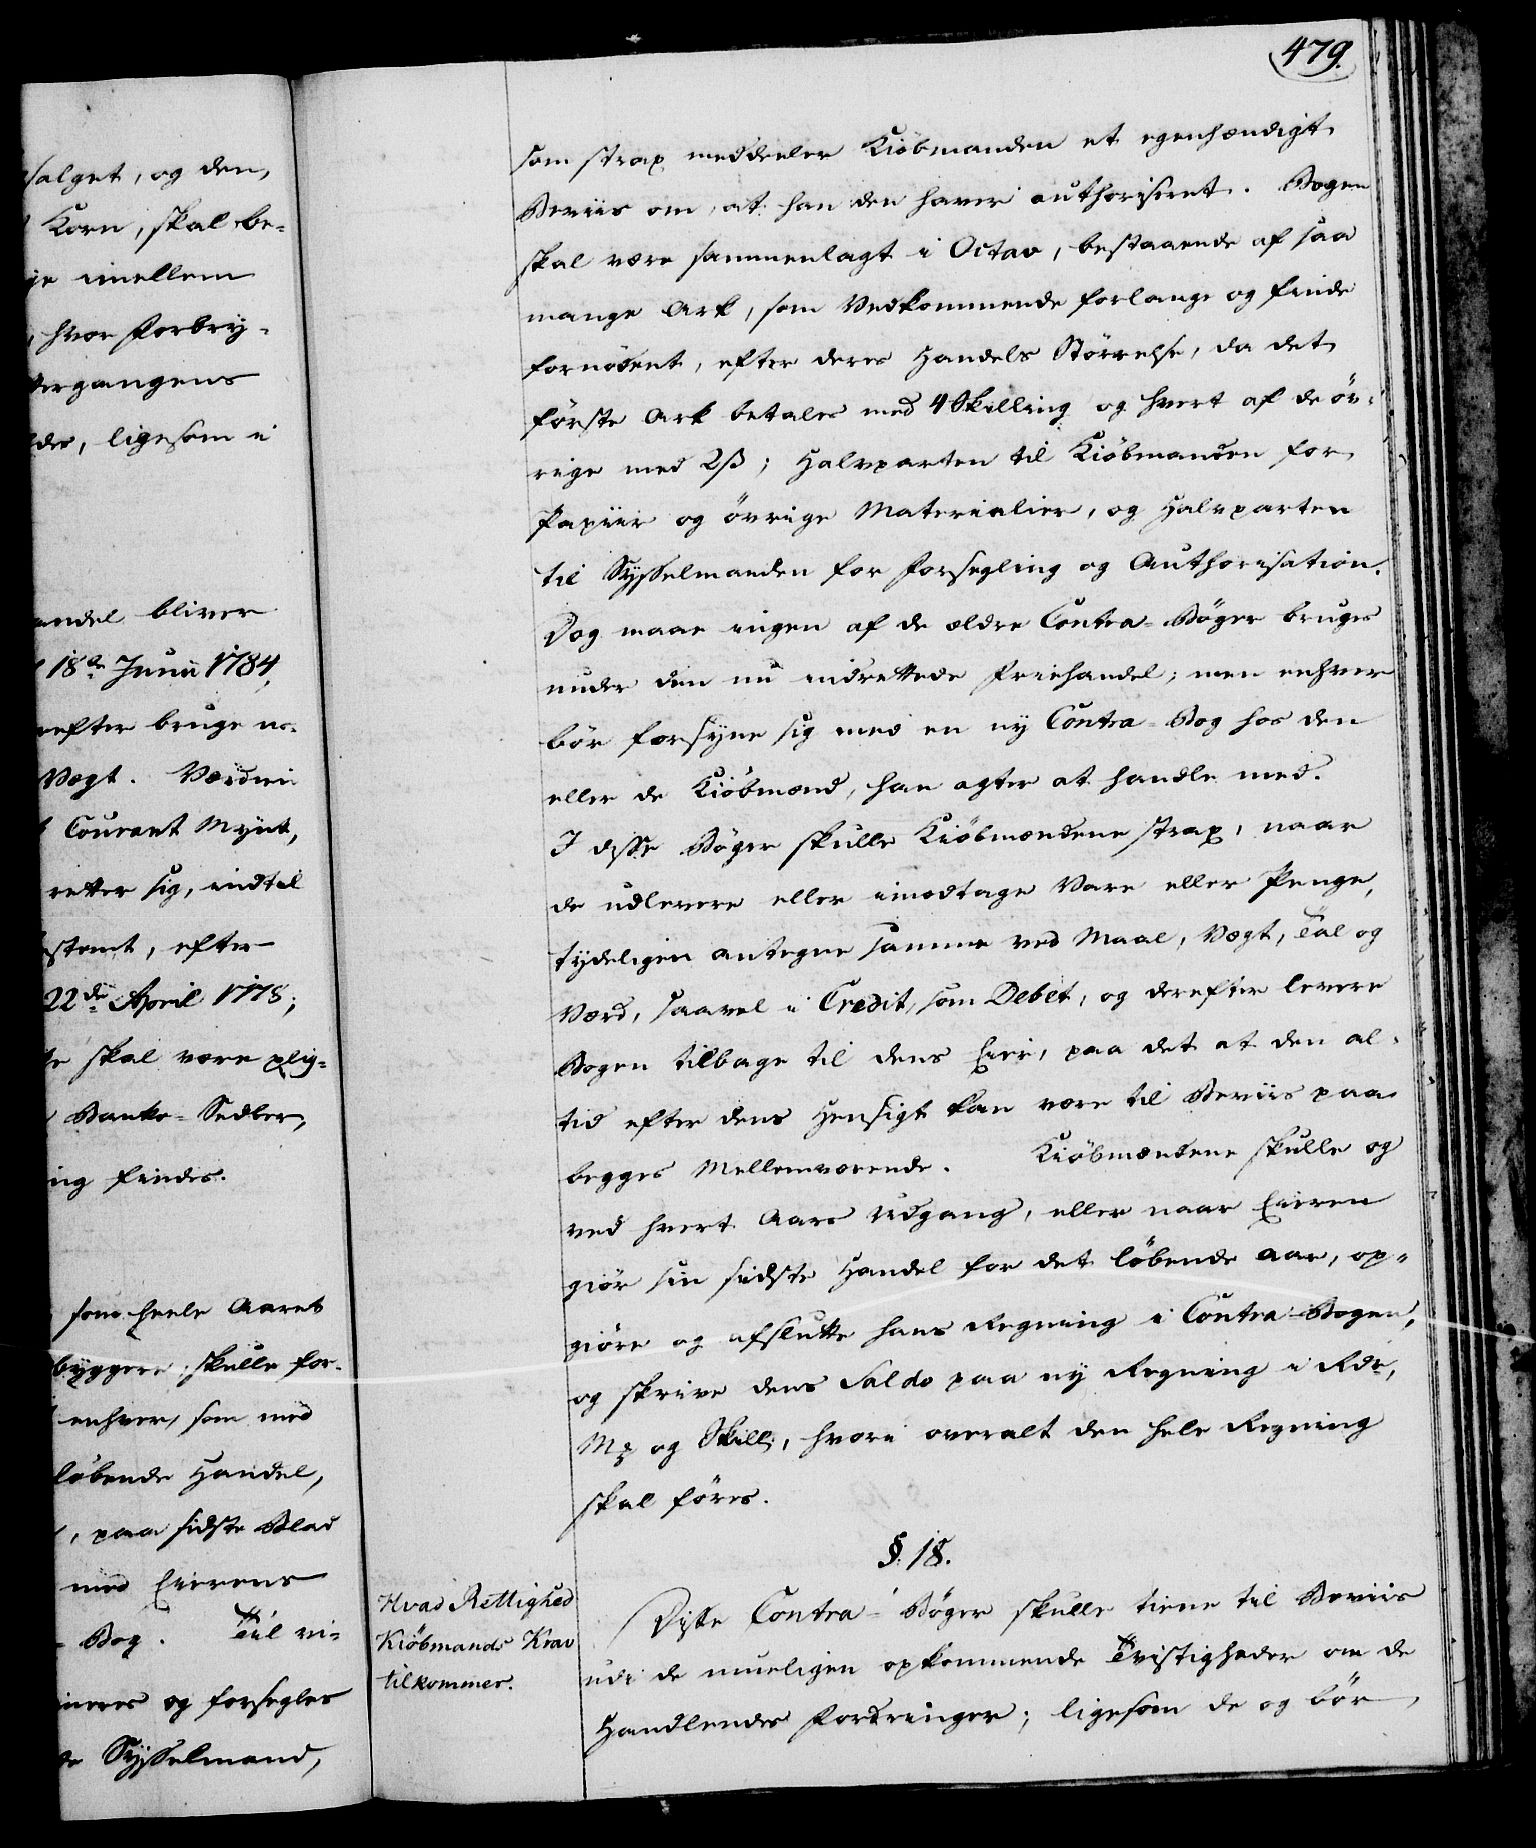 salget, og den,
Korn, skal be-
ge imellem
, hvor Forbry-
tergangens
des, ligesom i
andel bliver
18de Junii 1784,
efter bruge no-
Vægt. Værdien
Courant Mynt,
retter sig, indtil
stemt, efter
22de April 1778;
te skal være plig-
Banko-Sedler,
ng findes.
som heele Aaret
byggere, skulle for-
enhver, som med
løbende Handel,
, paa sidste Blad
med Eierens
Bog. Til vi-
ineres og forsegles
de Sysselmand,
479.
som strax meddeeler Kiöbmanden et egenhændigt
Beviis om, at han den haver authoriseret. Bogen
skal være sammenlagt i Octav, bestaaende af saa
mange Ark, som Vedkommende forlange og finde
fornødent, efter deres Handels Störrelse, da det
förste Ark betales med 4 Skilling og hvert af de öv-
rige med 2 ß; Halvparten til Kiöbmanden for
Papiir og övrige Materialier, og Halvparten
til Sysselmanden for Forsegling og Authorisation.
Dog maae ingen af de ældre Contra-Böger bruges
under den nu indrettede Friehandel; men enhver
bör forsyne sig med en ny Contra-Bog hos den
eller de Kiöbmænd, han agter at handle med.
I disse Böger skulle Kiöbmændene strax, naar
de udlevere eller imodtage Vare eller Penge,
tydeligen antegne samme ved Maal, Vægt, Tal og
Værd, saavel i Credit, som Debet, og derefter levere
Bogen tilbage til dens Eier, paa det at den al-
tid efter dens Hensigt kan være til Beviis paa
begges Mellemværende. Kiöbmændene skulle og
ved hvert Aars Udgang, eller naar Eieren
giör sin sidste Handel for det löbende Aar, op-
giöre og afslutte hans Regning i Contra-Bogen,
og skrive dens Saldo paa ny Regning i Rdr,
Mk og Skill, hvori overalt den hele Regning
skal föres.
§. 18.
Hvad Rettighed
Kiöbmands Krav
tilkommer.
Disse Contra-Böger skulle tiene til Beviis
udi de mueligen opkommende Tvistigheder om de
Handlendes Fordringer; ligesom de og bör